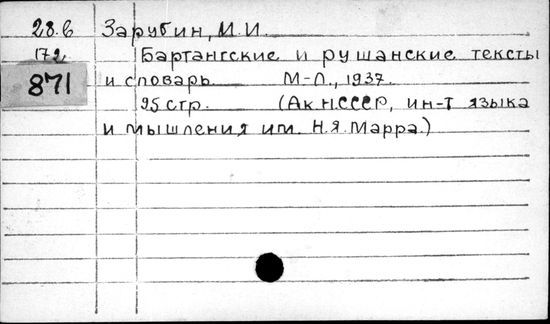 28.б Зарубин, И.И.
172 Бартангские и рушанские тексты
871 и словарь М-Л., 1937.
95 стр. (Ак.НСССР, ин-т языка
и мышления им. Н.Я.Марра.)